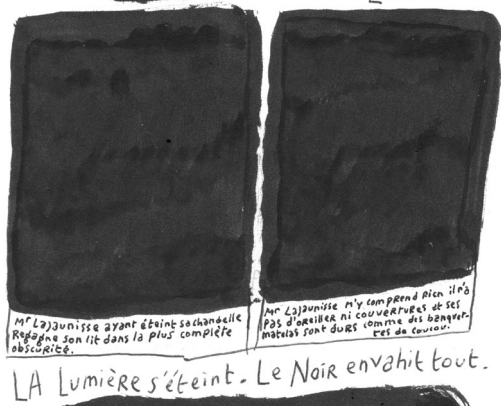 Mr Lajaunisse ayant éteint sa chandelle
Regagne son lit dans la plus complète
obscurité.
Mr Lajaunisse n'y comprend Rien il n'a
pas d'oreiller ni couvertures et ses
matelas sont durs comme des banquet-
tes de coucou.
LA Lumière s'éteint. Le Noir envahit tout.